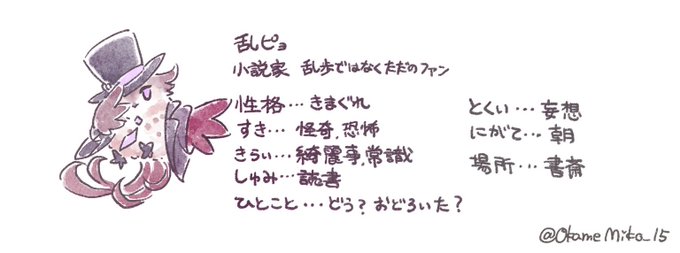 乱ピョ
小説家 乱歩ではなくただのファン
性格…きまぐれ
すき…怪奇,恐怖
きらい…綺麗事,常識
しゅみ…読書
ひとこと…どう？おどろいた？
とくい…妄想
にがて…朝
場所…書斎
@OkameMiko_15